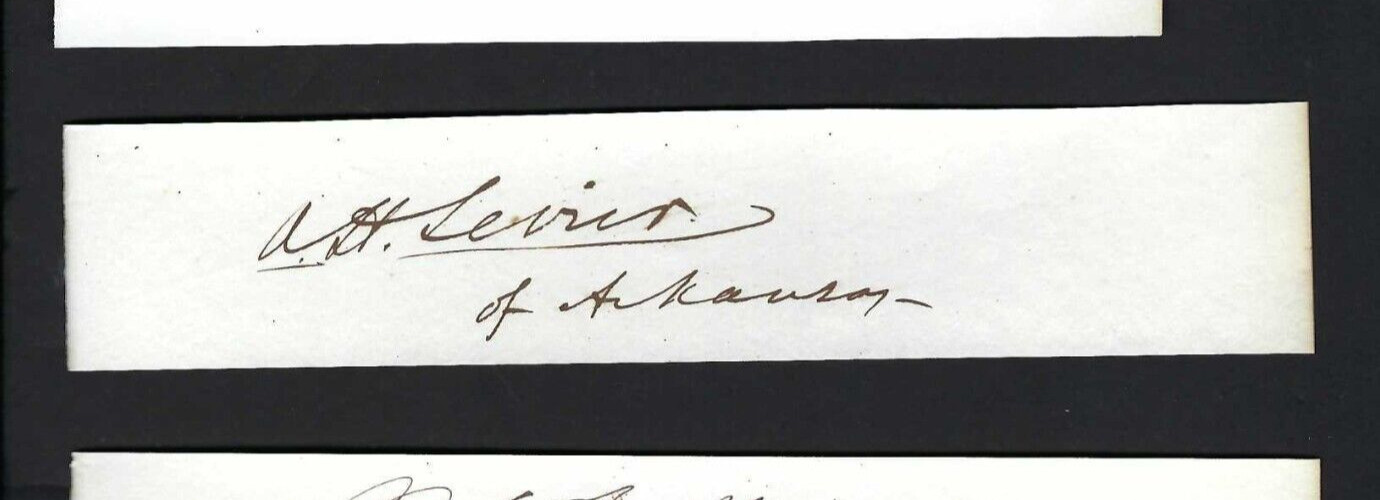 A. H. Sevier
of Arkansas